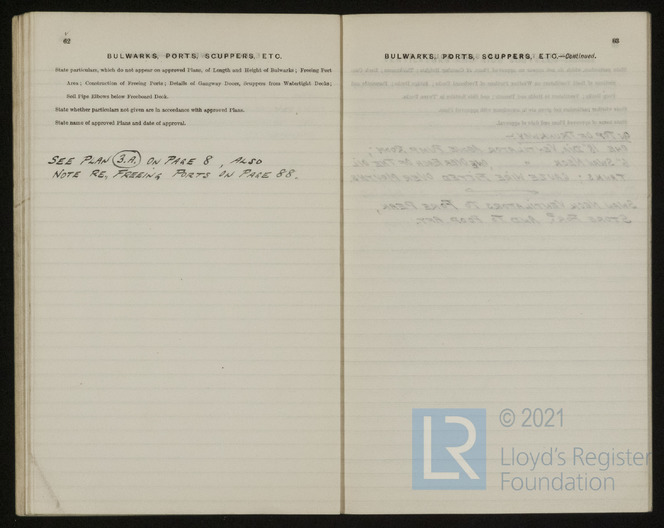 62
BULWARKS, PORTS, SCUPPERS, ETC.
State particulars, which do not appear on approved Plans, of Length and Height of Bulwarks; Freeing Port
Area; Construction of Freeing Ports; Details of Gangway Doors, Scuppers from Watertight Decks;
Soil Pipe Elbows below Freeboard Deck.
State whether particulars not given are in accordance with approved Plans.
State name of approved Plans and date of approval.
SEE PLAN 3.A. ON PAGE 8, ALSO
NOTE RE, FREEING PORTS ON PAGE 88.
63
BULWARKS, PORTS, SCUPPERS, ETC.—Continued.
LR
© 2021
Lloyd's Register
Foundation